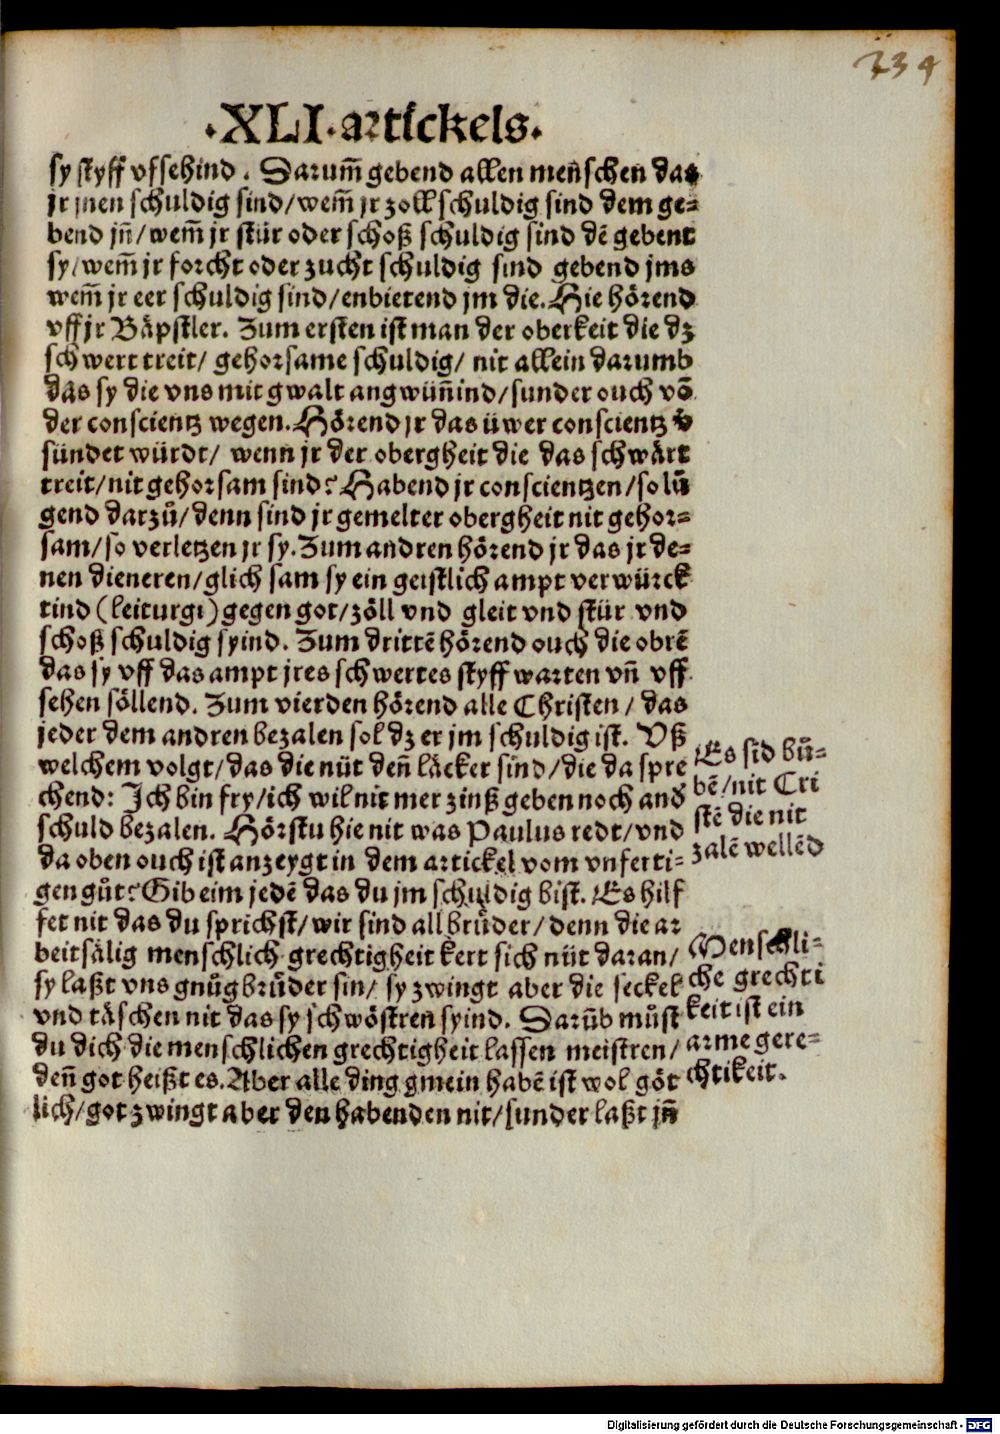 334
·XLI· artickels.
sy styff vfsehind. Darum̃ gebend allen menschen das
jr jnen schuldig sind/wem̃ jr zoll schuldig sind dem ge⸗
bend jn̄/wem̃ jr stür oder schoß schuldig sind dē gebent
sy/wem̃ jr forcht oder zucht schuldig sind gebend jms
wem̃ jr eer schuldig sind/enbietend jm die. Hie hörend
vff jr Bäpstler. Zum ersten ist man der oberkeit die dz
schwert treit/ gehorsame schuldig/ nit allein darumb
das sy die vns mit gwalt angwün̄ind/sunder ouch vō
der conscientz wegen. Hörend jr das üwer conscientz v̄
sündet würdt/ wenn jr der obergheit die das schwärt
treit/nit gehorsam sind? Habend jr conscientzen/so lū
gend darzů/denn sind jr gemelter obergheit nit gehor⸗
sam/so verletzen jr sy. Zum andren hörend jr das jr de⸗
nen dieneren/glich sam sy ein geistlich ampt verwürck
tind (leiturgi) gegen got/zöll vnd gleit vnd stür vnd
schoß schuldig syind. Zum drittē hörend ouch die obrē
das sy vff das ampt jres schwertes styff warten vn̄ vff
sehen söllend. Zum vierden hörend alle Christen/ das
jeder dem andren bezalen sol dz er jm schuldig ist. Vß
welchem volgt/das die nüt den̄ läcker sind/die da spre
chend: Ich bin fry/ich wil nit mer zinß geben noch and̄
schuld bezalen. Hörstu hie nit was Paulus redt/vnd
da oben ouch ist anzeygt in dem artickel vom vnferti⸗
gen gůt? Gib eim jedē das du jm schuldig bist. Es hilf
fet nit das du sprichst/wir sind all brůder/denn die ar
beitsälig menschlich grechtigheit kert sich nüt daran/
sy laßt vns gnůg brůder sin/ sy zwingt aber die seckel
vnd täschen nit das sy schwöstren syind. Darūb můst
du dich die menschlichen grechtigheit lassen meistren/
den̄ got heißt es. Aber alle ding gmein habē ist wol göt
lich/got zwingt aber den habenden nit/sunder laßt jn̄
Es sid bů⸗
bē/nit Cri
stē die nit
zalē wellēd
Menschli⸗
che grechti
keit ist ein
arme gere⸗
chtikeit.
Digitalisierung gefördert durch die Deutsche Forschungsgemeinschaft - DFG